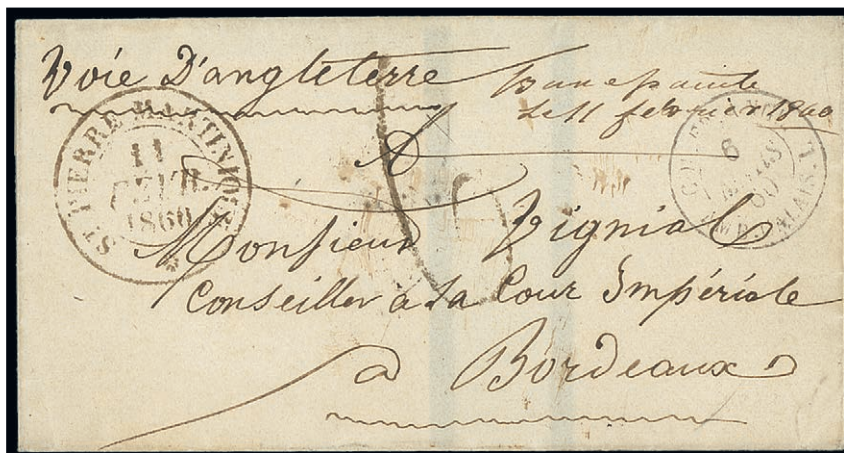 Voie D'angleterre
le 11 février 1860
ST PIERRE MARTINIQUE
11
FEVR.
1860
6
MARS
60
AMB. CALAIS
A
Monsieur Vignial
Conseiller à la Cour Impériale
à Bordeaux